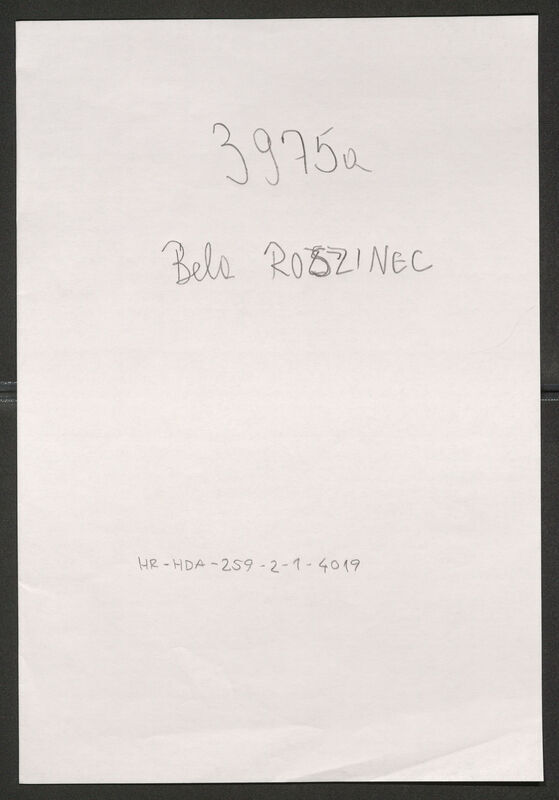 3975a
Bela ROSZINEC
HR-HDA-259-2-1-4019